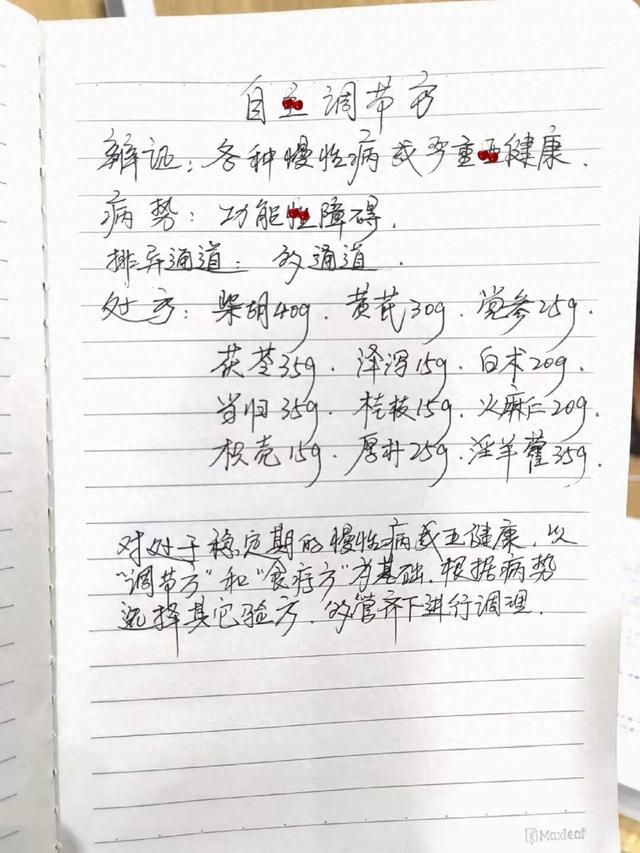 自主调节方
辨证：各种慢性病或严重亚健康.
病势：功能性障碍.
排异通道：多通道.
处方：柴胡40g. 黄芪30g. 党参25g.
茯苓35g. 泽泻15g. 白术20g.
当归35g. 桂枝15g. 火麻仁20g.
枳壳15g. 厚朴25g. 淫羊藿35g.
对处于稳定期的慢性病或亚健康，以
“调节方”和“食疗方”为基础，根据病势
选择其它验方，多管齐下进行调理.
Maxleaf